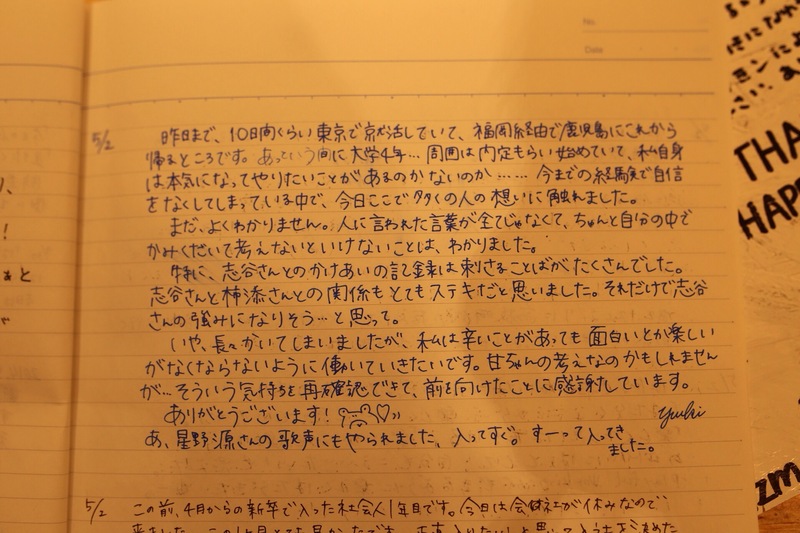 No.
Date
5/2
昨日まで、10日間くらい東京で就活していて、福岡経由で鹿児島にこれから
帰るところです。あっという間に大学4年… 周囲は内定もらい始めていて、私自身
は本気になってやりたいことがあるのかないのか…… 今までの経験で自信
をなくしてしまっている中で、今日ここで多くの人の想いに触れました。
まだ、よくわかりません。人に言われた言葉が全てじゃなくて、ちゃんと自分の中で
かみくだいて考えないといけないことは、わかりました。
特に、志谷さんとのかけあいの記録は刺さることばがたくさんでした。
志谷さんと柿添さんとの関係もとてもステキだと思いました。それだけで志谷
さんの強みになりそう…と思って。
いや、長々かいてしまいましたが、私は辛いことがあっても面白いとか楽しい
がなくならないように働いていきたいです。甘ちゃんの考えなのかもしれません
が…そういう気持ちを再確認できて、前を向けたことに感謝しています。
ありがとうございます!
Yuki
あ、星野源さんの歌声にもやられました、入ってすぐ。すーって入ってき
ました。
5/2
この前、4月からの新卒で入った社会人1年目です。今日は会社が休みなので
THA
HAP